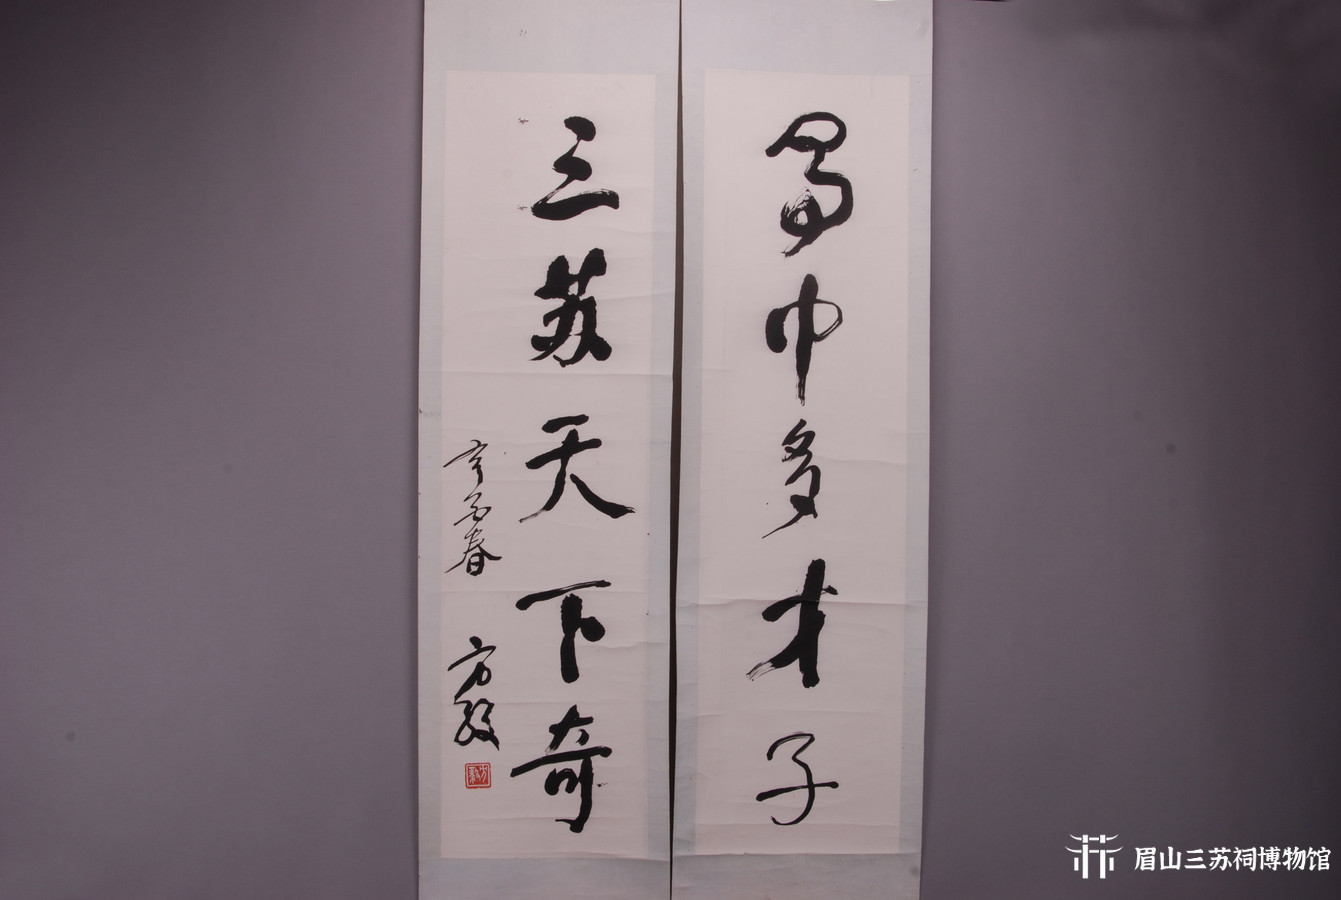 蜀中多才子
三苏天下奇
辛未春
方毅
眉山三苏祠博物馆